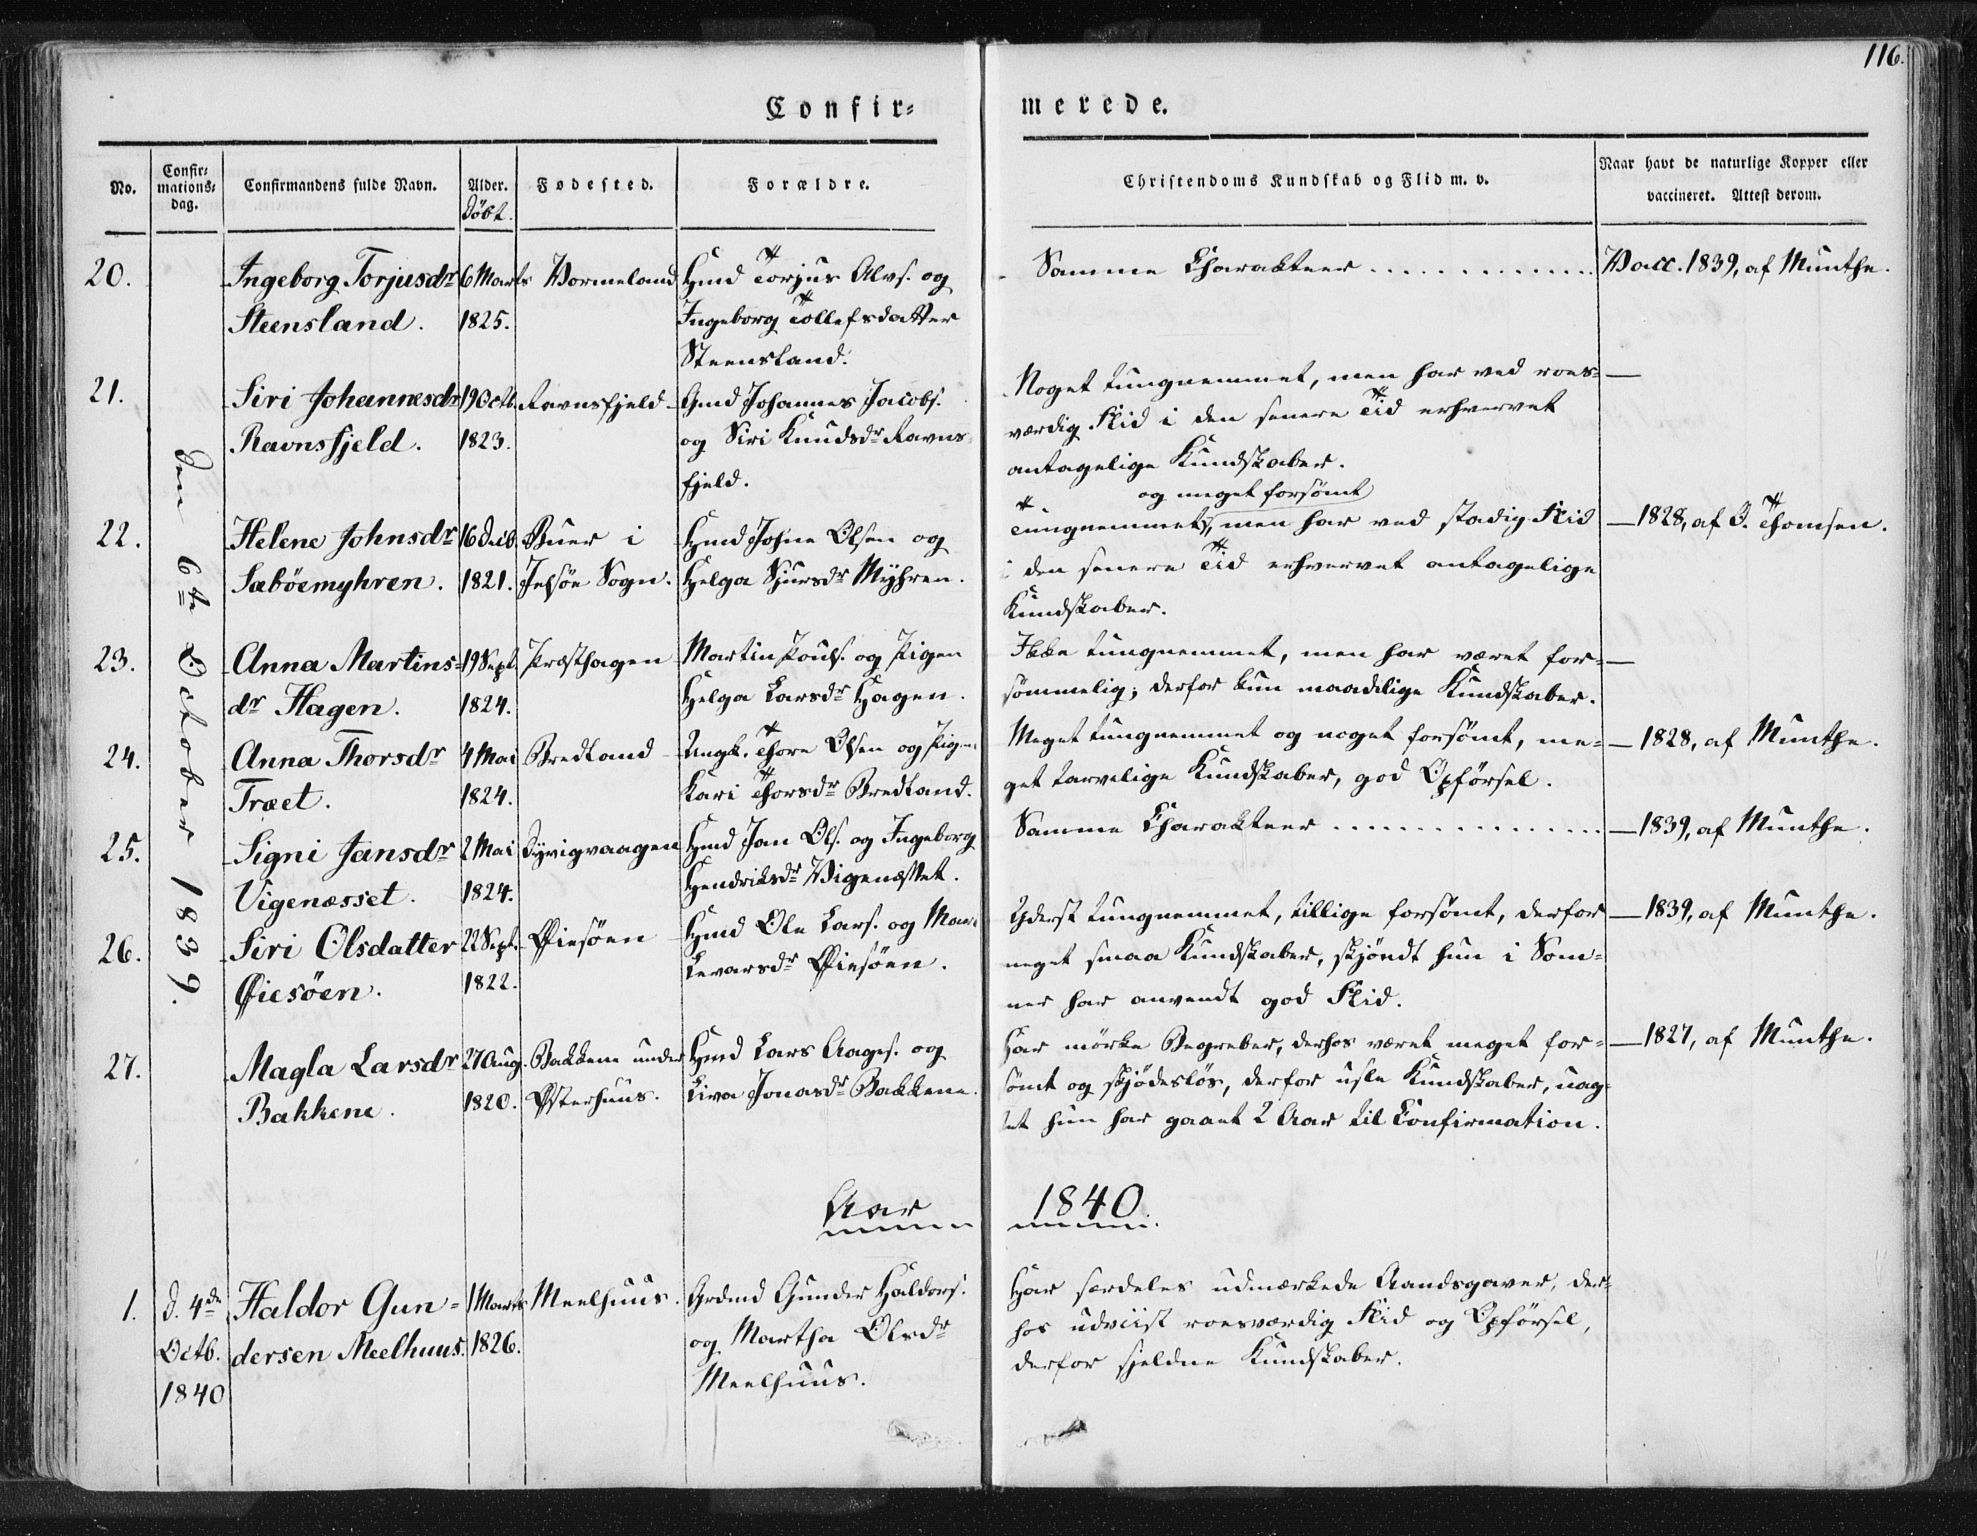 116.
Confir=
merede.
No.
Confir=
mations=
dag.
Confirmandens fulde Navn.
Alder.
Döbt.
Fødested.
Forældre.
Christendoms Kundskab og Flid m. v.
Naar havt de naturlige Kopper eller
vaccineret. Attest derom.
den 6te October 1839.
20.
Ingeborg Torjusdr
Steensland.
6 Marts
1825.
Vormeland
Hmd Torjus Alvs. og
Ingeborg Tollefsdatter
Steensland.
Samme Charakteer . . . . . . . . . . . . . .
Vacc. 1839, af Munthe.
21.
Siri Johannesdr
Ravnsfjeld.
19 Octb.
1823.
Ravnsfjeld
Gmd Johannes Jacobs.
og Siri Knudsdr Ravns=
fjeld.
Noget tungnemmet, men har ved roes=
værdig Flid i den senere Tid erhvervet
antagelige Kundskaber.
—
22.
Helene Johnsdr
Sæböemyhren.
16 Decb.
1821.
Buer i
Jelsøe Sogn.
Hmd Johne Olsen og
Helga Sjursdr Myhren.
og meget forsömt
Tungnemmet, men har ved stadig Flid
i den senere Tid erhvervet antagelige
Kundskaber.
— 1828, af J. Thomsen.
23.
Anna Martins=
dr Hagen.
19 Sept.
1824.
Præsthagen
Martin Pouls. og Pigen
Helga Larsdr Hagen.
Ikke tungnemmet, men har været for=
sömmelig; derfor kun maadelige Kundskaber.
—
24.
Anna Thorsdr
Træet.
4 Mai
1824.
Bredland
Ungk. Thore Olsen og Pigen
Kari Thorsdr Bredland.
Meget tungnemmet og noget forsömt, me=
get tarvelige Kundskaber, god Opförsel.
— 1828, af Munthe.
25.
Signi Jansdr
Vigenæsset.
2 Mai
1824.
Dyvigvaagen
Hmd Jan Ols. og Ingeborg
Hendriksdr Vigenæsset.
Samme Charakteer . . . . . . . . . . . . . . . .
— 1839, af Munthe.
26.
Siri Olsdatter
Øiesöen.
22 Sept.
1822.
Øiesöen
Hmd Ole Lars. og Mar=
Levarsdr Øiesöen.
Yderst tungnemmet, tillige forsömt, derfor
meget smaa Kundskaber, skjöndt hun i Som=
mer har anvendt god Flid.
— 1839, af Munthe.
27.
Magla Larsdr
Bakkene.
27 Aug.
1820.
Bakkene under
Østerhuus.
Hmd Lars Aages. og
Liva Jonasdr Bakkene.
Har mörke Begreber, derhos været meget for=
sömt og skjödeslös, derfor usle Kundskaber, uag=
tet hun har gaaet 2 Aar til Confirmation.
— 1827, af Munthe.
Aar 1840.
1.
d. 4de
Octb.
1840
Haldor Gun=
dersen Meelhuus.
1 Marts
1826.
Meelhuus.
Grdmd Gunder Haldors.
og Martha Olsdr
Meelhuus.
Har særdeles udmærkede Aandsgaver, der=
hos udviist roesværdig Flid og Opförsel,
derfor sjeldne Kundskaber.